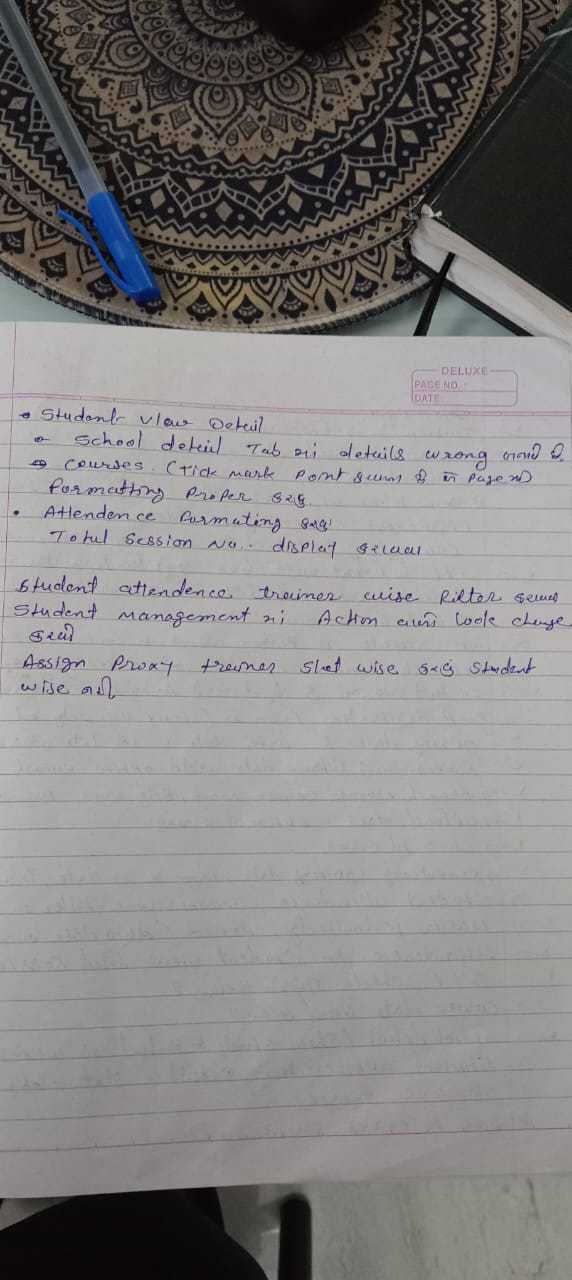 DELUXE
PAGE NO. :
DATE:
• Student View Detail
School detail Tab ની details wrong આવે છે.
Courses. (Tick mark Point છે Page
formatting Proper કરવું.
• Attendence formating કરવું
Total Session No.. display કરાવવા
Student attendence trainer wise filter કરાવવા
Student management ની Action વાળી look change
કરવી
Assign Proxy trainer slot wise કરવું Student
wise નહી